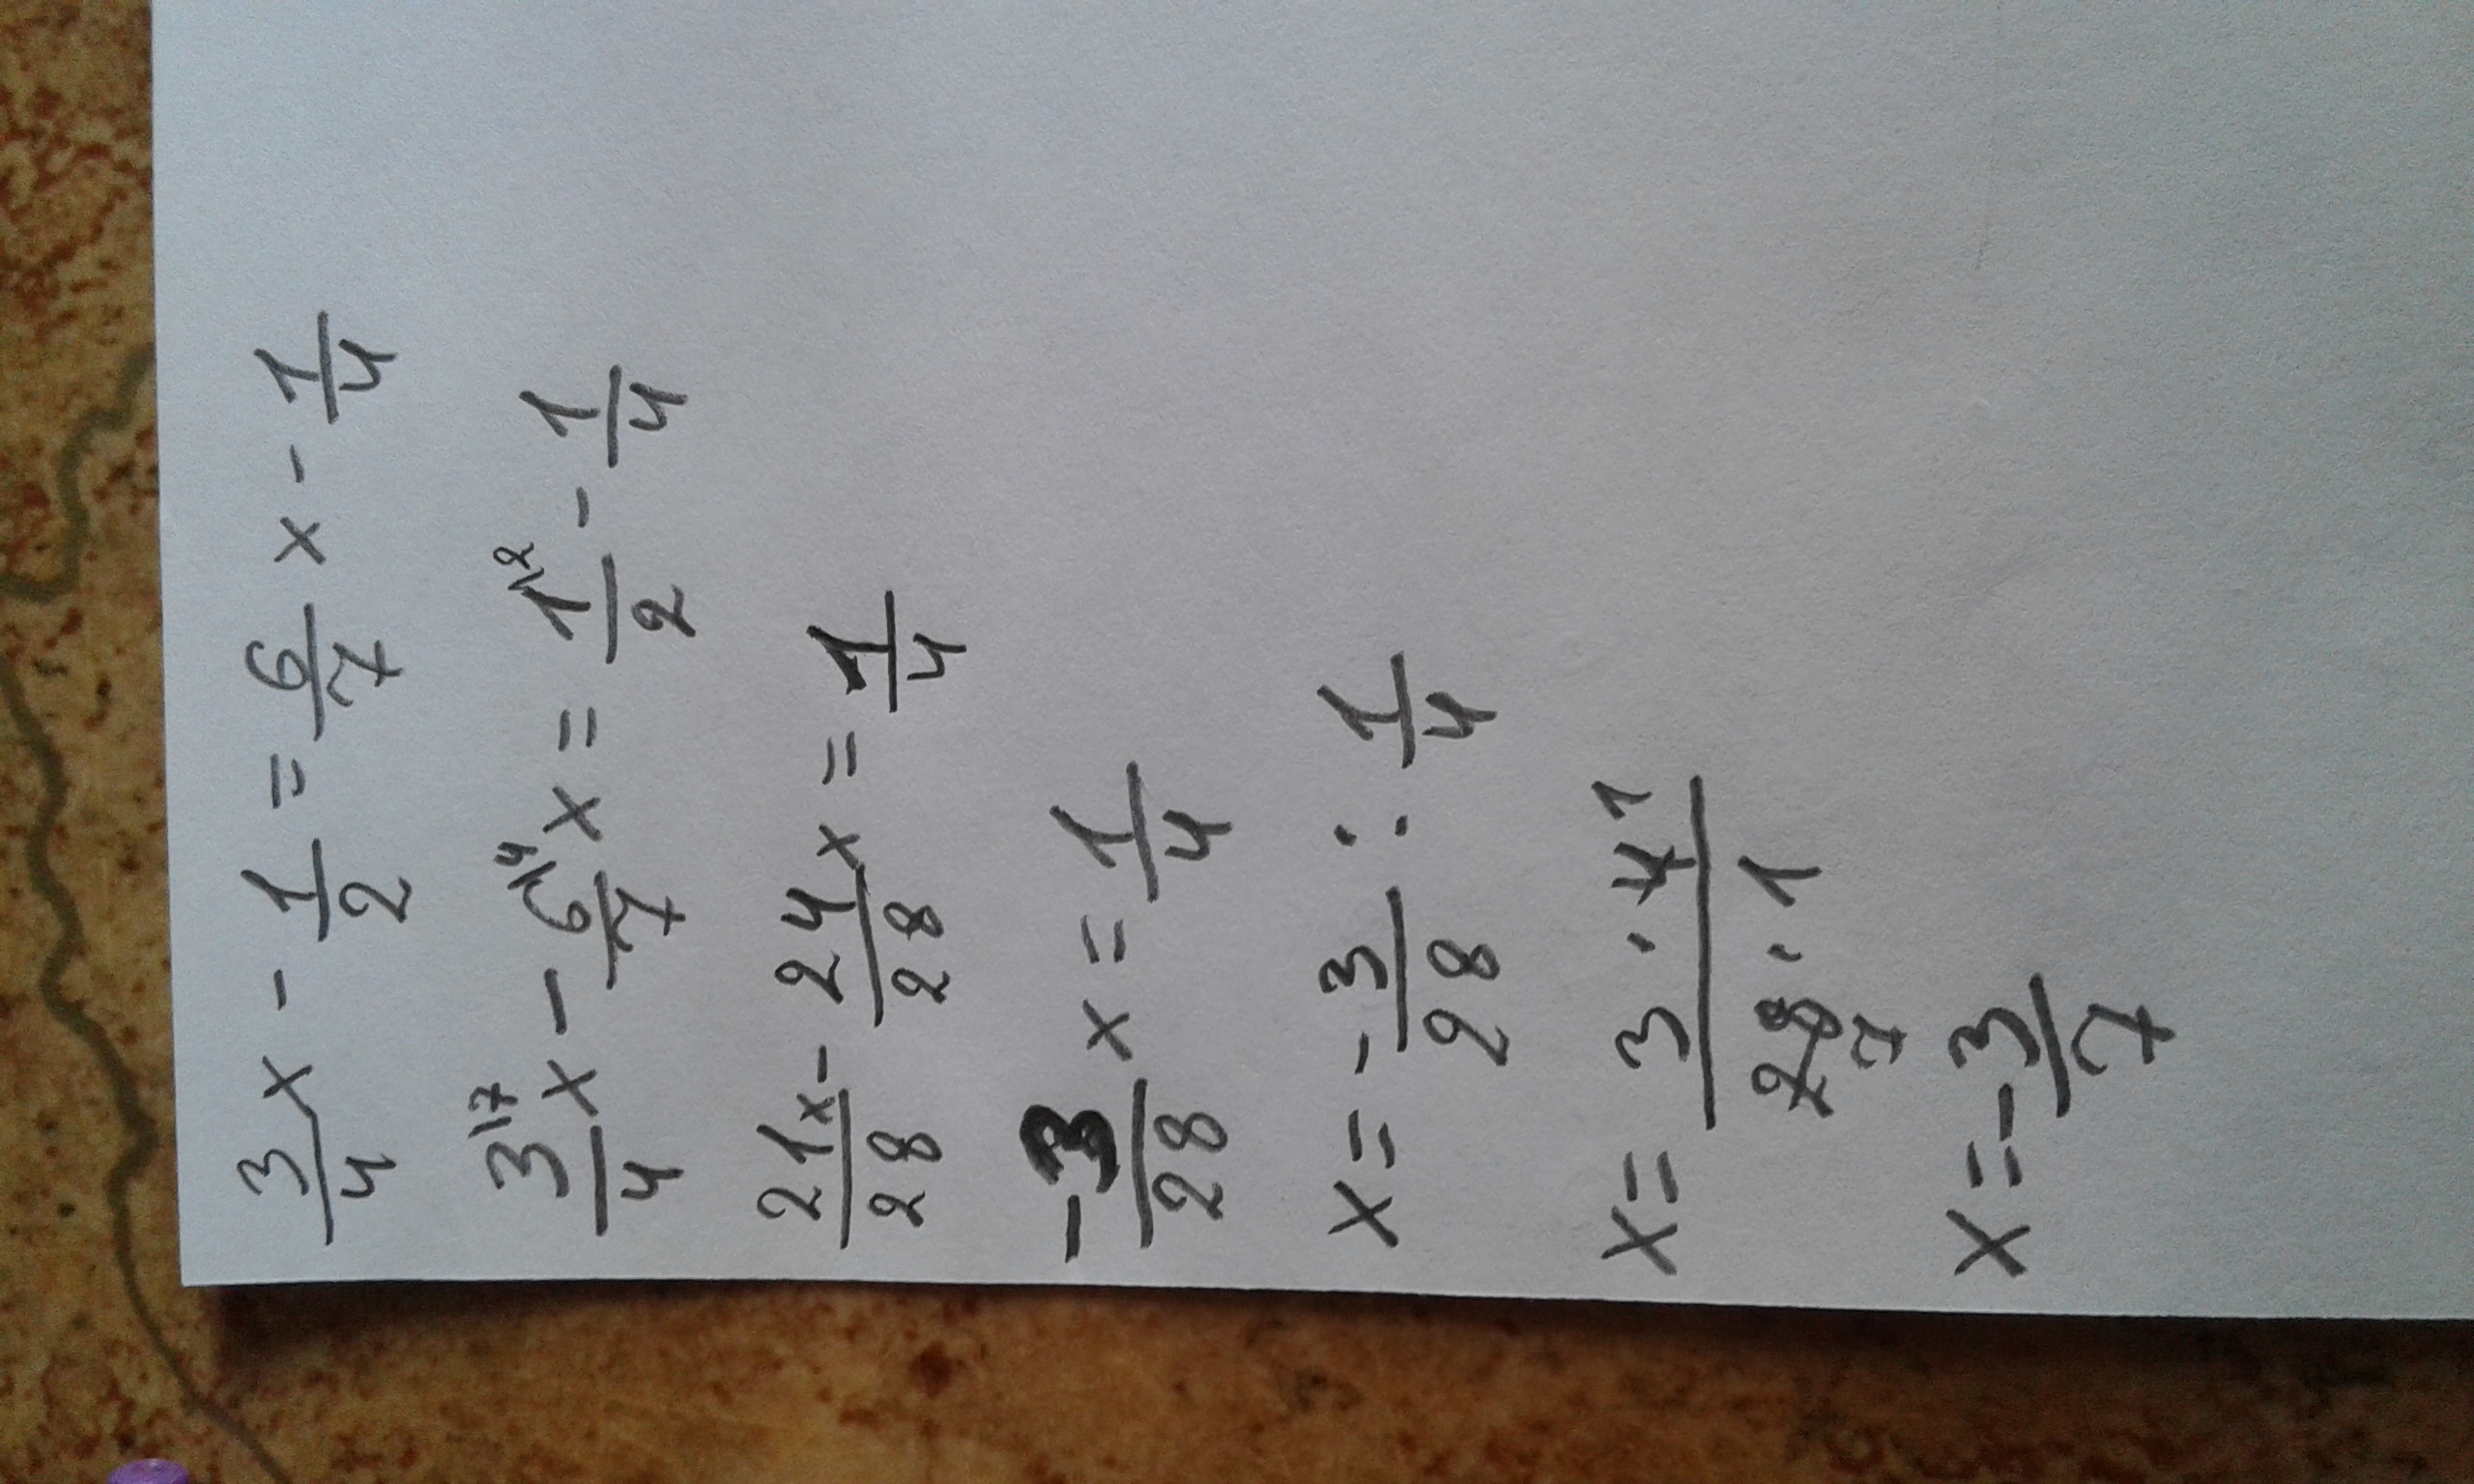 3/4 x - 1/2 = 6/7 x - 1/4
3\7/4 x - 6\4/7 x = 1\2/2 - 1/4
21x/28 - 24/28 x = 1/4
-3/28 x = 1/4
x = - 3/28 : 1/4
x = 3 · 4 1/28 7 · 1
x = - 3/7